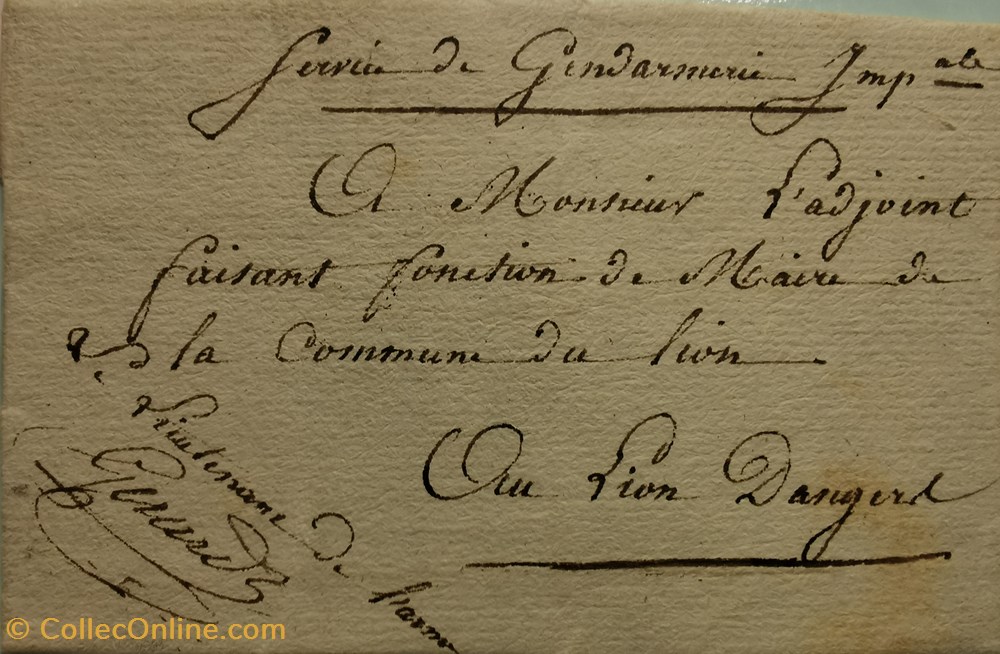 Service de Gendarmerie Imp ale
A Monsieur L'adjoint
faisant fonction de Maire de
la Commune du lion
Au Lion Dangerd
Lieutenant
de l'arme
© CollecOnline.com